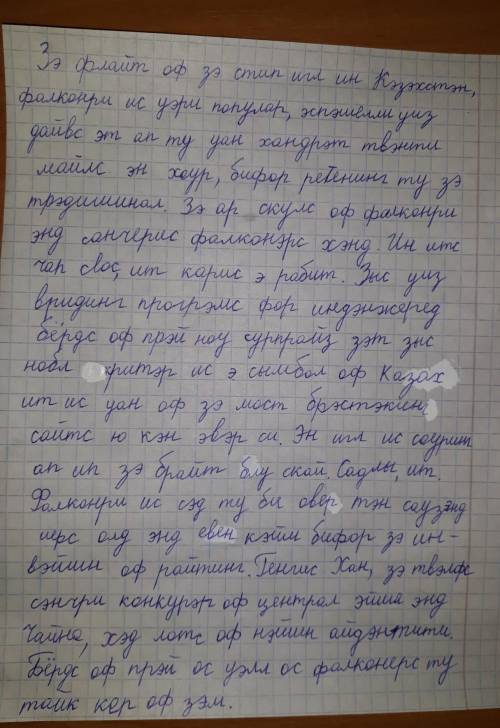 Зэ флайт оф зэ стип игл ин Кэзэхстэн,
фалконри ис уэри популар, эспэшелли уиз
дайвс эт ап ту уан хандрэт твэнти
майлс эн хоур, бифор ретенинг ту зэ
трэдишинал. Зэ ар скулс оф фалконри
энд санчерис фалконэрс хэнд. Ин итс
чап свос, ит карис э рабит. Зыс уиз
вридинг прогрэмс фор индэнжеред
бёрдс оф прэй ноу сурпрайз зэт зыс
нобл критэр ис э сымбол оф Казах
ит ис уан оф зэ мост брэстэкинг
сайтс ю кэн эвэр си. Эн игл ис соуринг
ап ин зэ брайт блу скай. Садлы, ит.
Фалконри ис сэд ту би овер тэн саузэнд
иерс олд энд евен кэйм бифор зэ ин-
вэйшн оф райтинг. Генгис Хан, зэ твэлфс
сэнчри конкурэр оф централ эйша энд
Чайна, хэд лотс оф нэйшн айдэнтити.
Бёрдс оф прэй ос уэлл ос фалконерс ту
тайк кер оф зэм.